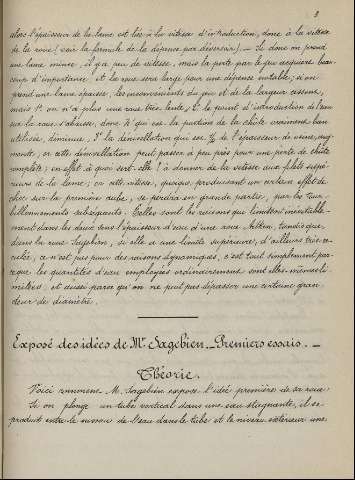 8
alors l'épaisseur de la lame est liée à la vitesse d'introduction, donc à la vitesse
de la roue (voir la formule de la dépense par déversoir). — Si donc on prend
une lame mince, il y a peu de vitesse, mais la perte par le jeu acquiert beau-
coup d'importance et la roue sera large pour une dépense notable; si on
prend une lame épaisse, les inconvénients du jeu et de la largeur cessent,
mais 1° on n'a plus une roue très lente; 2° le point d'introduction de l'eau
sur la roue s'abaisse, donc la portion de la chûte vraiment bien
utilisée, diminue, 3° la dénivellation qui est de l'épaisseur de veine, aug-
mente, or cette dénivellation peut passer à peu près pour une perte de chûte
complète; en effet à quoi sert-elle? à donner de la vitesse aux filets supé-
rieurs de la lame; or cette vitesse, quoique produisant un certain effet de
choc sur la première aube, se perdra en grande partie, par les tour-
billonnements subséquents. Telles sont les raisons qui limitent inévitable-
ment dans les deux sens l'épaisseur d'eau d'une roue tandis que,
dans la roue Sagebien, si elle a une limite supérieure, d'ailleurs très re-
culée, ce n'est pas pour des raisons dynamiques, c'est tout simplement par-
ceque les quantités d'eau employées ordinairement sont elles-mêmes li-
mitées et aussi parce qu'on ne peut pas dépasser une certaine gran-
deur de diamètre.
Exposé des idées de Mr Sagebien. — Premiers essais. —
Théorie.
Voici comment M. Sagebien expose l'idée première de sa roue:
Si on plonge un tube vertical dans une eau stagnante, il se
produit entre le niveau de l'eau dans le tube et le niveau extérieur une